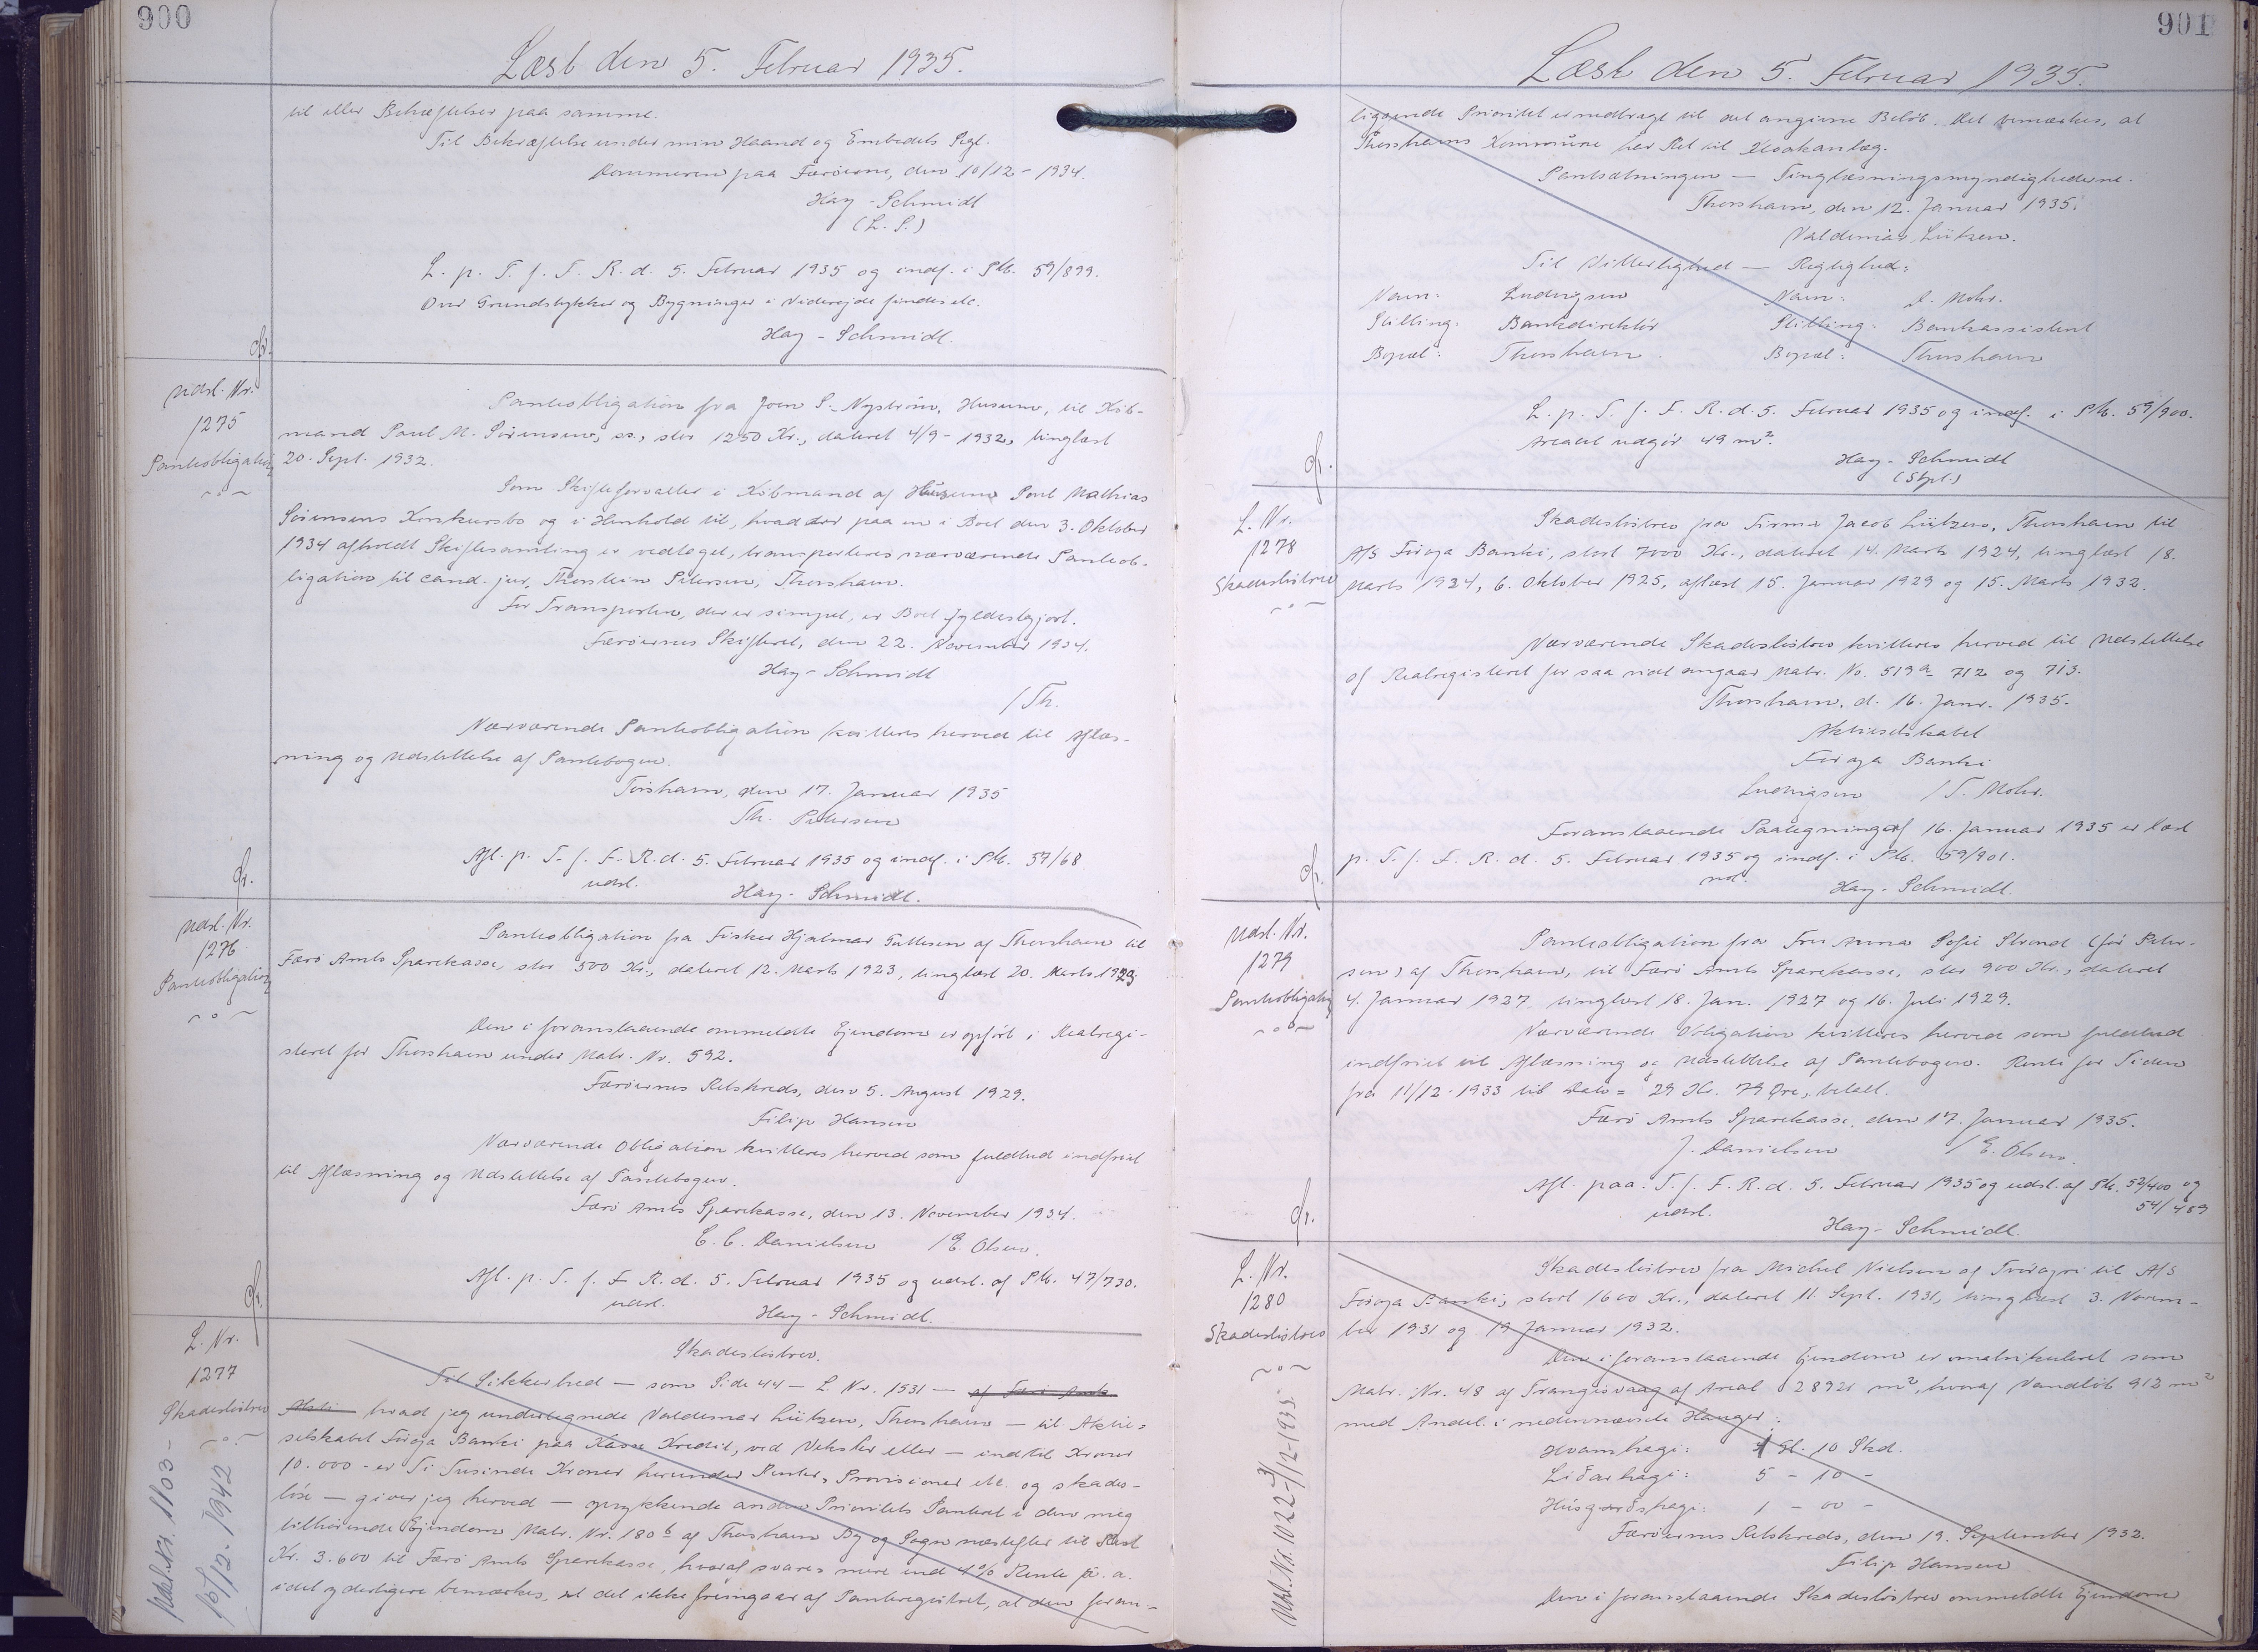 900
Læst den 5. Februar 1935.
til eller Behæftelser paa samme.
Til Bekræftelse under min Haand og Embedets Segl.
Dommeren paa Færøerne, den 10/12 - 1934.
Hay-Schmidt
(L. S.)
L. p. T. f. F. R. d. 5. Februar 1935 og indf. i Pb. 59/899.
Over Grundstykker og Bygninger i Viderejde findes etc.
Hay-Schmidt.
Udsl. Nr.
1275
Panteobligation
Panteobligation fra Joen S. Nyström, Husum, til Køb-
mand Poul M. Sørensen, ss., stor 1250 Kr., dateret 4/9 - 1932, tinglæst
20. Sept. 1932.
Som Skifteforvalter i Købmand af Husum Poul Mathias
Sørensens Konkursbo og i Henhold til, hvad der paa en i Boet den 3. Oktober
1934 afholdt Skiftesamling er vedtaget, transporteres nærværende Panteob-
ligation til cand. jur. Thorstein Petersen, Thorshavn.
For Transporten, der er simpel, er Boet fyldestgjort.
Færøernes Skifteret, den 22. November 1934.
Hay-Schmidt
/Th.
Nærværende Panteobligation kvitteres herved til Aflæs-
ning og Udslettelse af Pantebogen.
Tórshavn, den 17. Januar 1935
Th. Petersen
Afl. p. T. f. F. R. d. 5. Februar 1935 og indf. i Pb. 57/68
udsl.
Hay-Schmidt.
Udsl. Nr.
1276
Panteobligation
Panteobligation fra Fisker Hjalmar Tallesen af Thorshavn til
Færø Amts Sparekasse, stor 500 Kr., dateret 12. Marts 1923, tinglæst 20. Marts 1923.
Den i foranstaaende ommeldte Ejendom er opført i Realregi-
steret for Thorshavn under Matr. Nr. 592.
Færøernes Retskreds, den 5. August 1929.
Filip Hansen
Nærværende Obligation kvitteres herved som fuldtud indfriet
til Aflæsning og Udslettelse af Pantebogen.
Færø Amts Sparekasse, den 13. November 1934.
C. C. Danielsen /E. Olsen.
Afl. p. T. f. F. R. d. 5. Februar 1935 og udsl. af Pb. 47/730.
udsl.
Hay-Schmidt.
L. Nr.
1277
Skadesløsbrev
Udsl. Nr. 1103 -
/12. 1942
Skadesløsbrev.
Til Sikkerhed — som Side 44 — L. Nr. 1531 — af Færø Amts
hvad jeg undertegnede Valdemar Lützen, Thorshavn — til Aktie-
selskabet Føroya Banki paa Kasse Kredit, ved Veksler eller — indtil Kroner
10.000 - er Ti Tusinde Kroner herunder Renter, Provisioner etc. og skades-
løse — giver jeg herved — oprykkende anden Prioritets Panteret i den mig
tilhørende Ejendom Matr. Nr. 180 b af Thorshavn By og Sogn næstefter til Rest
Kr. 3.600 til Færø Amts Sparekasse, hvoraf svares mere end 4% Rente p. a.
idet yderligere bemærkes, at det ikke fremgaar af Panteregistret, at den foran-
901
Læst den 5. Februar 1935.
liggende Prioritet er nedbragt til det angivne Beløb. Det bemærkes, at
Thorshavns Kommune har Ret til Kloakanlæg.
Pantsætningen — Tinglæsningsmyndighederne.
Thorshavn, den 12. Januar 1935.
Valdemar Lützen.
Til Vitterlighed — Rigtighed:
Navn: Ludvigsen Navn: D. Mohr.
Stilling: Bankdirektör Stilling: Bankassistent
Bopæl: Thorshavn Bopæl: Thorshavn
L. p. T. f. F. R. d. 5. Februar 1935 og indf. i Pb. 59/900.
Arealet udgör 49 m².
Hay-Schmidt
(Stpl.)
L. Nr.
1278
Skadesløsbrev
Skadesløsbrev fra Firma Jacob Lützen, Thorshavn til
A/S Føroya Banki, stort 7000 Kr., dateret 14. Marts 1924, tinglæst 18.
Marts 1924, 6. Oktober 1925, aflæst 15. Januar 1929 og 15. Marts 1932.
Nærværende Skadesløsbrev kvitteres herved til Udslettelse
af Realregisteret for saa vidt angaar Matr. No. 519a 712 og 713.
Thorshavn, d. 16. Janr. 1935.
Aktieselskabet
Føroya Banki
Ludvigsen /T. Mohr.
Foranstaaende Paategning af 16. Januar 1935 er læst
p. T. f. F. R. d. 5. Februar 1935 og indf. i Pb. 59/901.
not.
Hay-Schmidt.
Udsl. Nr.
1279
Panteobligation
Panteobligation fra Fru Anna Sofie Strand (før Peter-
sen) af Thorshavn, til Færø Amts Sparekasse, stor 900 Kr., dateret
4. Januar 1927 tinglæst 18. Jan. 1927 og 16. Juli 1929.
Nærværende Obligation kvitteres herved som fuldtud
indfriet til Aflæsning og Udslettelse af Pantebogen. Rente for Tiden
fra 11/12 - 1933 til Dato = 29 Kr. 79 Øre, betalt.
Færø Amts Sparekasse, den 17. Januar 1935.
J. Danielsen /E. Olsen.
Afl. paa. T. f. F. R. d. 5. Februar 1935 og udsl. af Pb. 52/400 og
54/489
udsl.
Hay-Schmidt.
L. Nr.
1280
Skadesløsbrev
Udsl. Nr. 1022 - 3/12-1935.
Skadesløsbrev fra Michel Nielsen af Tvöroyri til A/S
Føroya Banki, stort 1600 Kr., dateret 11. Sept. 1931, tinglæst 3. Novem-
ber 1931 og 19 Januar 1932.
Den i foranstaaende Ejendom er matrikuleret som
Matr. Nr. 48 af Trangisvaag af Areal 28921 m², hvoraf Vandløb 912 m²
med Andel i nedennævnte Hauger:
Hvamhagi: Gl. 10 Skd.
Liðarhagi: 5 - 10 -
Húsgarðshagi: 1 - 00 -
Færøernes Retskreds, den 19. September 1932.
Filip Hansen
Den i foranstaaende Skadesløsbrev ommeldte Ejendom